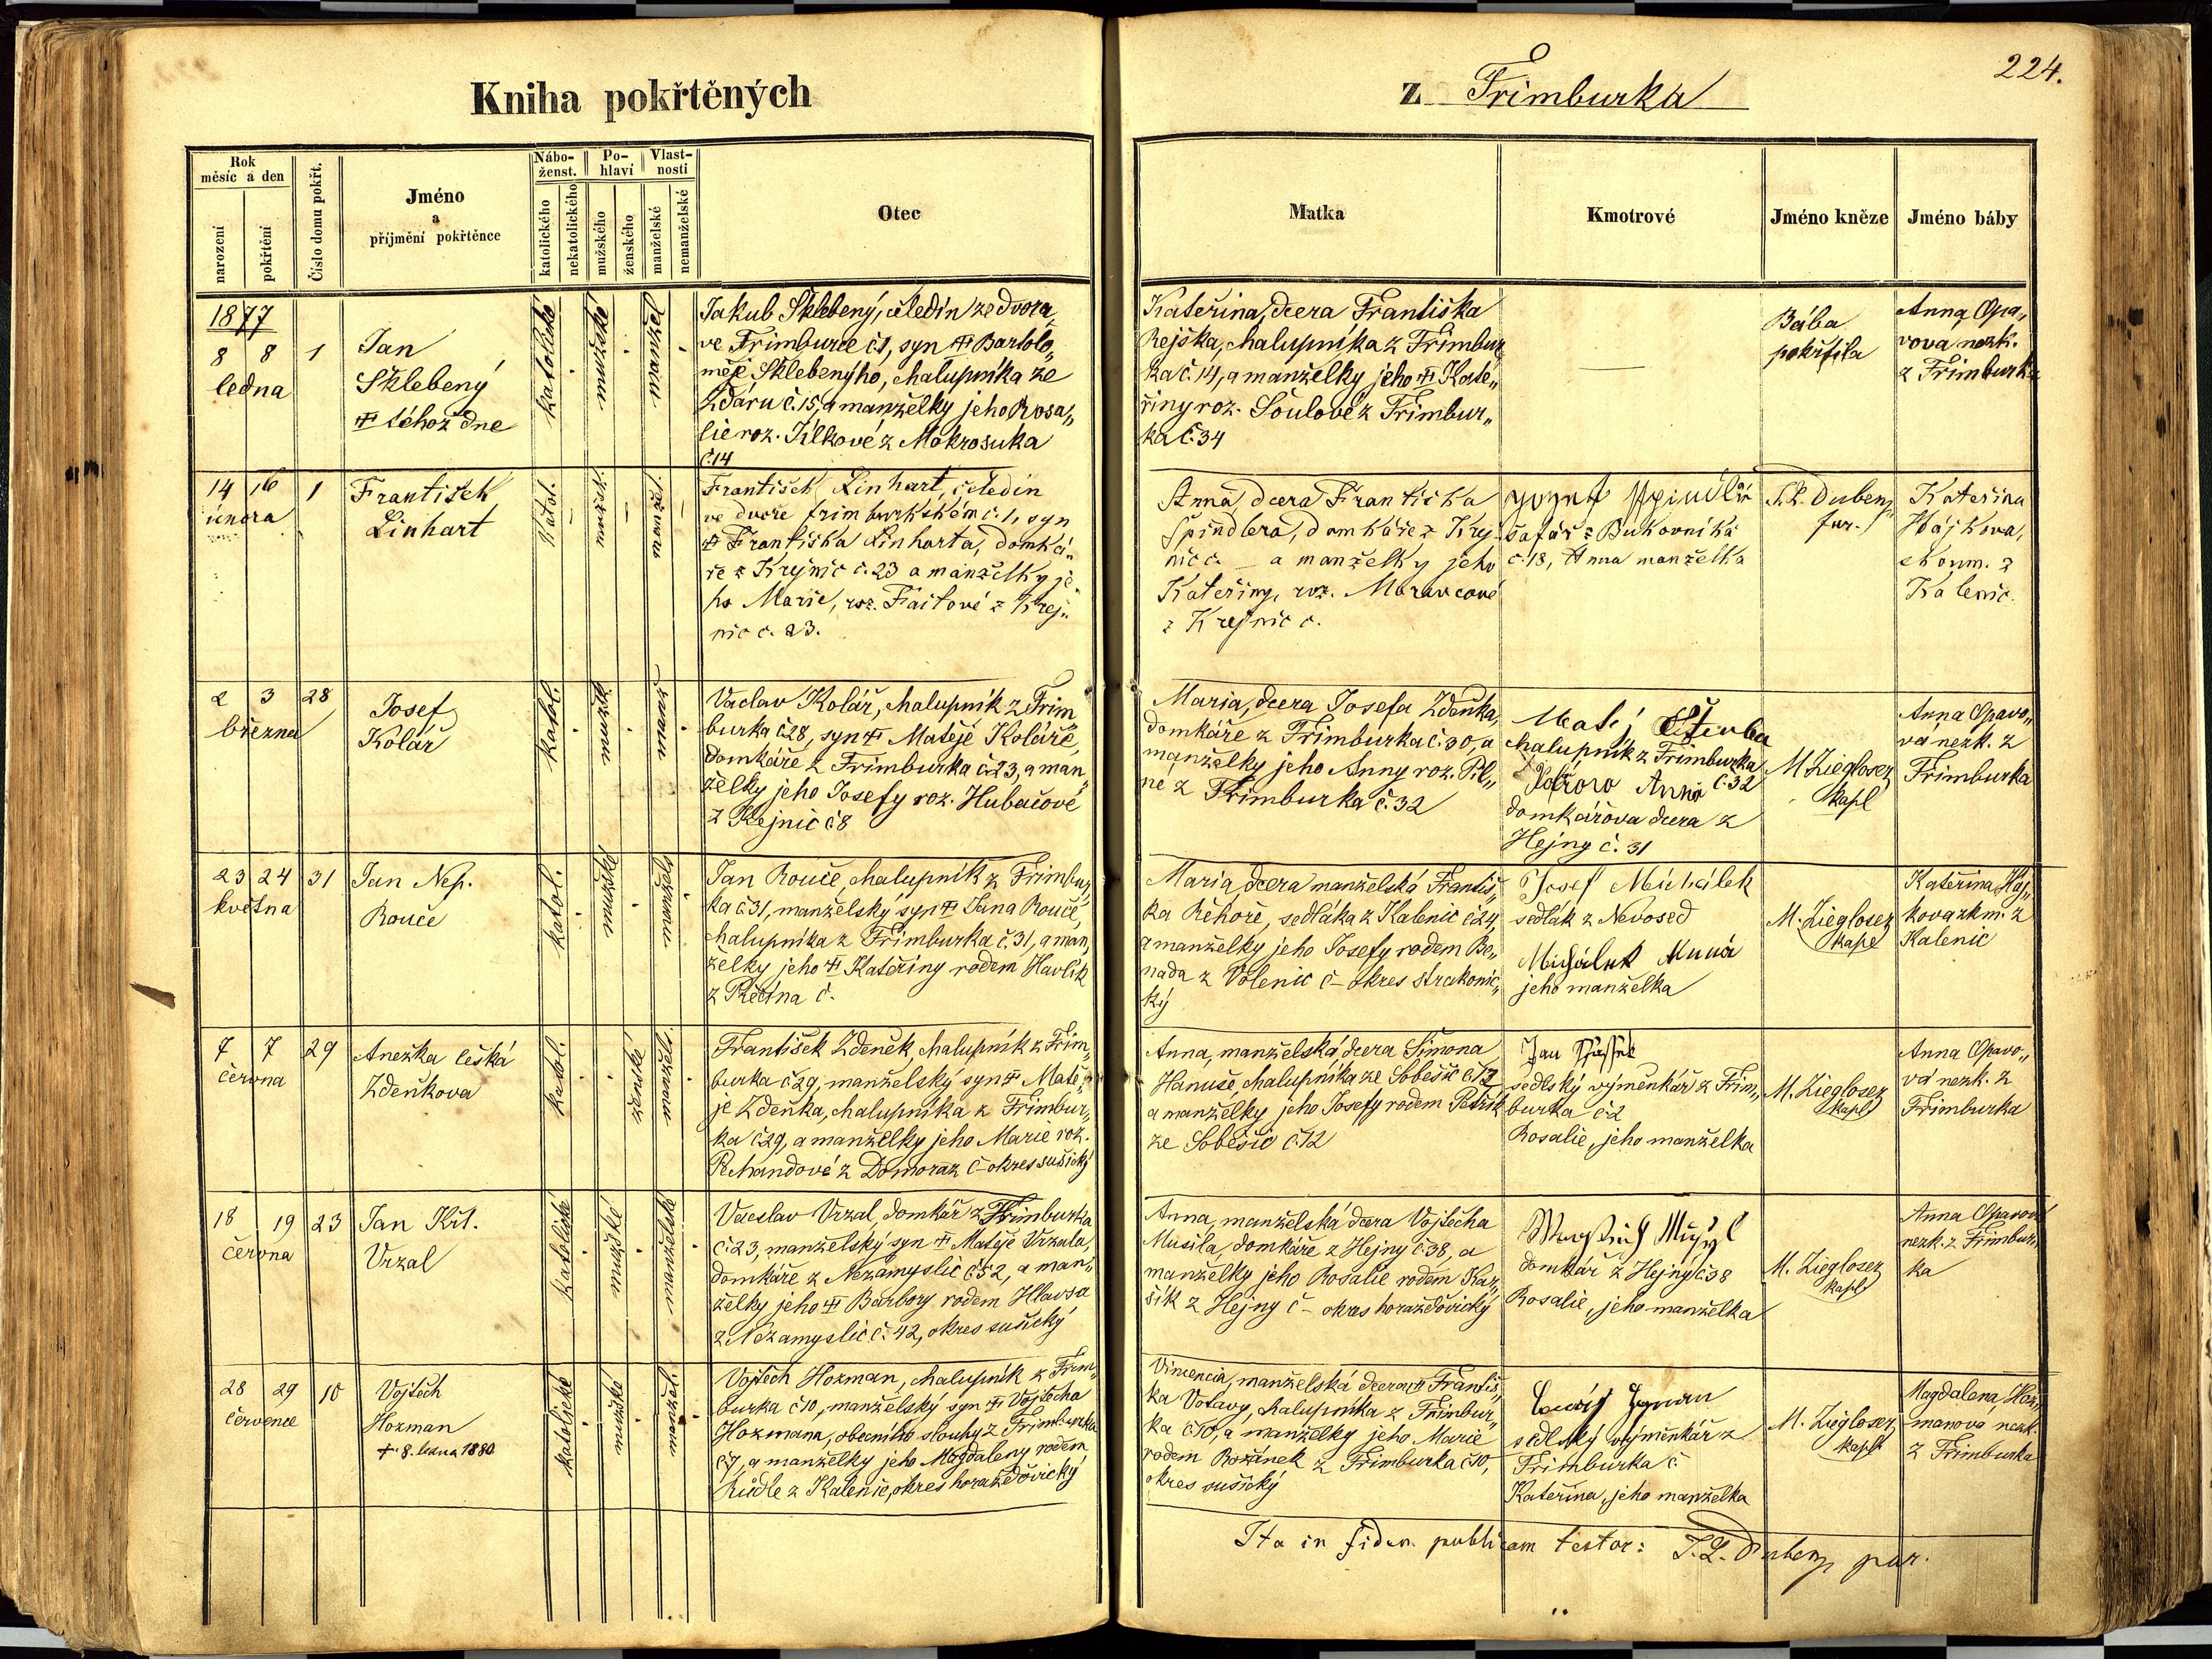 224.
Kniha pokřtěných
z Frimburka
Rok
měsíc a den
narození
pokřtění
Číslo domu pokřt.
Jméno
a
příjmění pokřtěnce
Nábo-
ženst.
katolického
nekatolického
Po-
hlaví
mužského
ženského
Vlast-
nosti
manželské
nemanželské
Otec
Matka
Kmotrové
Jméno kněze
Jméno báby
1877
8 8 1
ledna
Jan
Sklebený
téhož dne
katolické
mužské
manžel.
Jakub Sklebený, čeledín ze dvora
ve Frimburce č1, syn Bartolo„
měje Sklebenýho, chalupníka ze
Žďáru č.15, a manželky jeho Rosa„
lie roz. Jilkové z Mokrosuka
č.14
Kateřina, dcera Františka
Rejška, chalupníka z Frimbur
ka č.14, a manželky jeho Kate„
řiny roz. Soulové z Frimbur„
ka č.34
Bába
pokřtila
Anna Opa„
vova nezk.
z Frimburka
14 16 1
února
František
Linhart
Katol.
František Linhart, čeledín
ve dvoře frimburkském č.1, syn
Františka Linharta, domká„
ře z Krejnic č.23 a manželky je„
ho Marie, roz. Faitové z Krej„
nic č. 23.
Anna, dcera Františka
Špindlera, domkáře z Krej
nic č. _ a manželky jeho
Kateřiny, roz. Maravcové
z Krejnic č.
šafář z Bukovníka
č.18, Anna manželka
Kateřina
Hájkova,
zkoum. z
Kalenic.
2 3 28
března
Josef
Kolář
katol.
mužské
manžel.
Vaclav Kolář, chalupník z Frim
burka č28, syn Matěje Koláře,
domkáře z Frimburka č.23, a man„
želky jeho Josefy roz. Hubačové
z Krejnic č8
Maria, dcera Josefa Zdeňka,
domkáře z Frimburka č.30, a
manželky jeho Anny roz. Pil„
né z Frimburka č.32
Matěj
chalupník z Frimburka
č.32
Anna
domkářova dcera z
Hejny č. 31
M Zieglosez
kapl
Anna Opavo„
vá nezk. z
Frimburka
23 24 31
května
Jan Nep.
Rouče
katol.
mužské
manžels.
Jan Rouče, chalupník z Frimbur„
ka č31, manželský syn Jana Rouče,
chalupníka z Frimburka č.31, a man„
želky jeho Kateřiny rodem Havlík
z Kečína č.
Maria dcera manželská Františ„
ka Řehoře, sedláka z Kalenic č24,
a manželky jeho Josefy rodem Be„
nada z Volenic č– okres strakonic„
ký
Josef Michálek
sedlák z Nevosed
Michálek Anna
jeho manželka
M. Zieglosez
kapl
Kateřina Háj„
kova zkm. z
Kalenic
7 7 29
června
Anežka česká
Zdeňkova
katol.
ženské
manžel.
František Zdeněk, chalupník z Frim„
burka č29, manželský syn Matě„
je Zdeňka, chalupníka z Frimbur„
ka č29, a manželky jeho Marie roz.
Rchandové z Domoraz č– okres sušický
Anna, manželská dcera Šimona
Hanuše chalupníka ze Soběšic č.12
a manželky jeho Josefy rodem Petřík
ze Soběšic č12
Jan
sedlský výměnkář z Frim„
burka č2
Rosalie, jeho manželka
M. Zieglosez
kapl
Anna Opavo„
vá nezk. z
Frimburka
18 19 23
června
Jan Křt.
Vrzal
katolické
mužské
manželské
Vacslav Vrzal, domkář z Frimburka
č.23, manželský syn Matěje Vrzala,
domkáře z Nezamyslic č52, a man„
želky jeho Barbory rodem Hlavsa
z Nezamyslic č. 42, okres sušický
Anna, manželská dcera Vojtěcha
Musila, domkáře z Hejny č.38, a
manželky jeho Rosalie rodem Kaz„
sík z Hejny č– okres horažďovický
domkář z Hejny č38
Rosalie, jeho manželka
M. Zieglosez
kapl
Anna Opavová
nezk. z Frimbur„
ka
28 29 10
července
Vojtěch
Hozman
+ 8. ledna 1880
katolické
mužské
manžel.
Vojtěch Hozman, chalupník z Frim„
burka č10, manželský syn Vojtěcha
Hozmana, obecního slouhy z Frimburka
č7, a manželky jeho Magdaleny rodem
Kůdle z Kalenic, okres horažďovický
Vincencia, manželská dcera Františ„
ka Votavy, chalupníka z Frimbur„
ka č10, a manželky jeho Marie
rodem Božánek z Frimburka č10,
okres sušický
sedlský výměnkář z
Frimburka č
Kateřina, jeho manželka
M. Zieglosez
kapl
Magdalena Hoz„
manova nezk.
z Frimburka
Ita in fidem publicam testor: